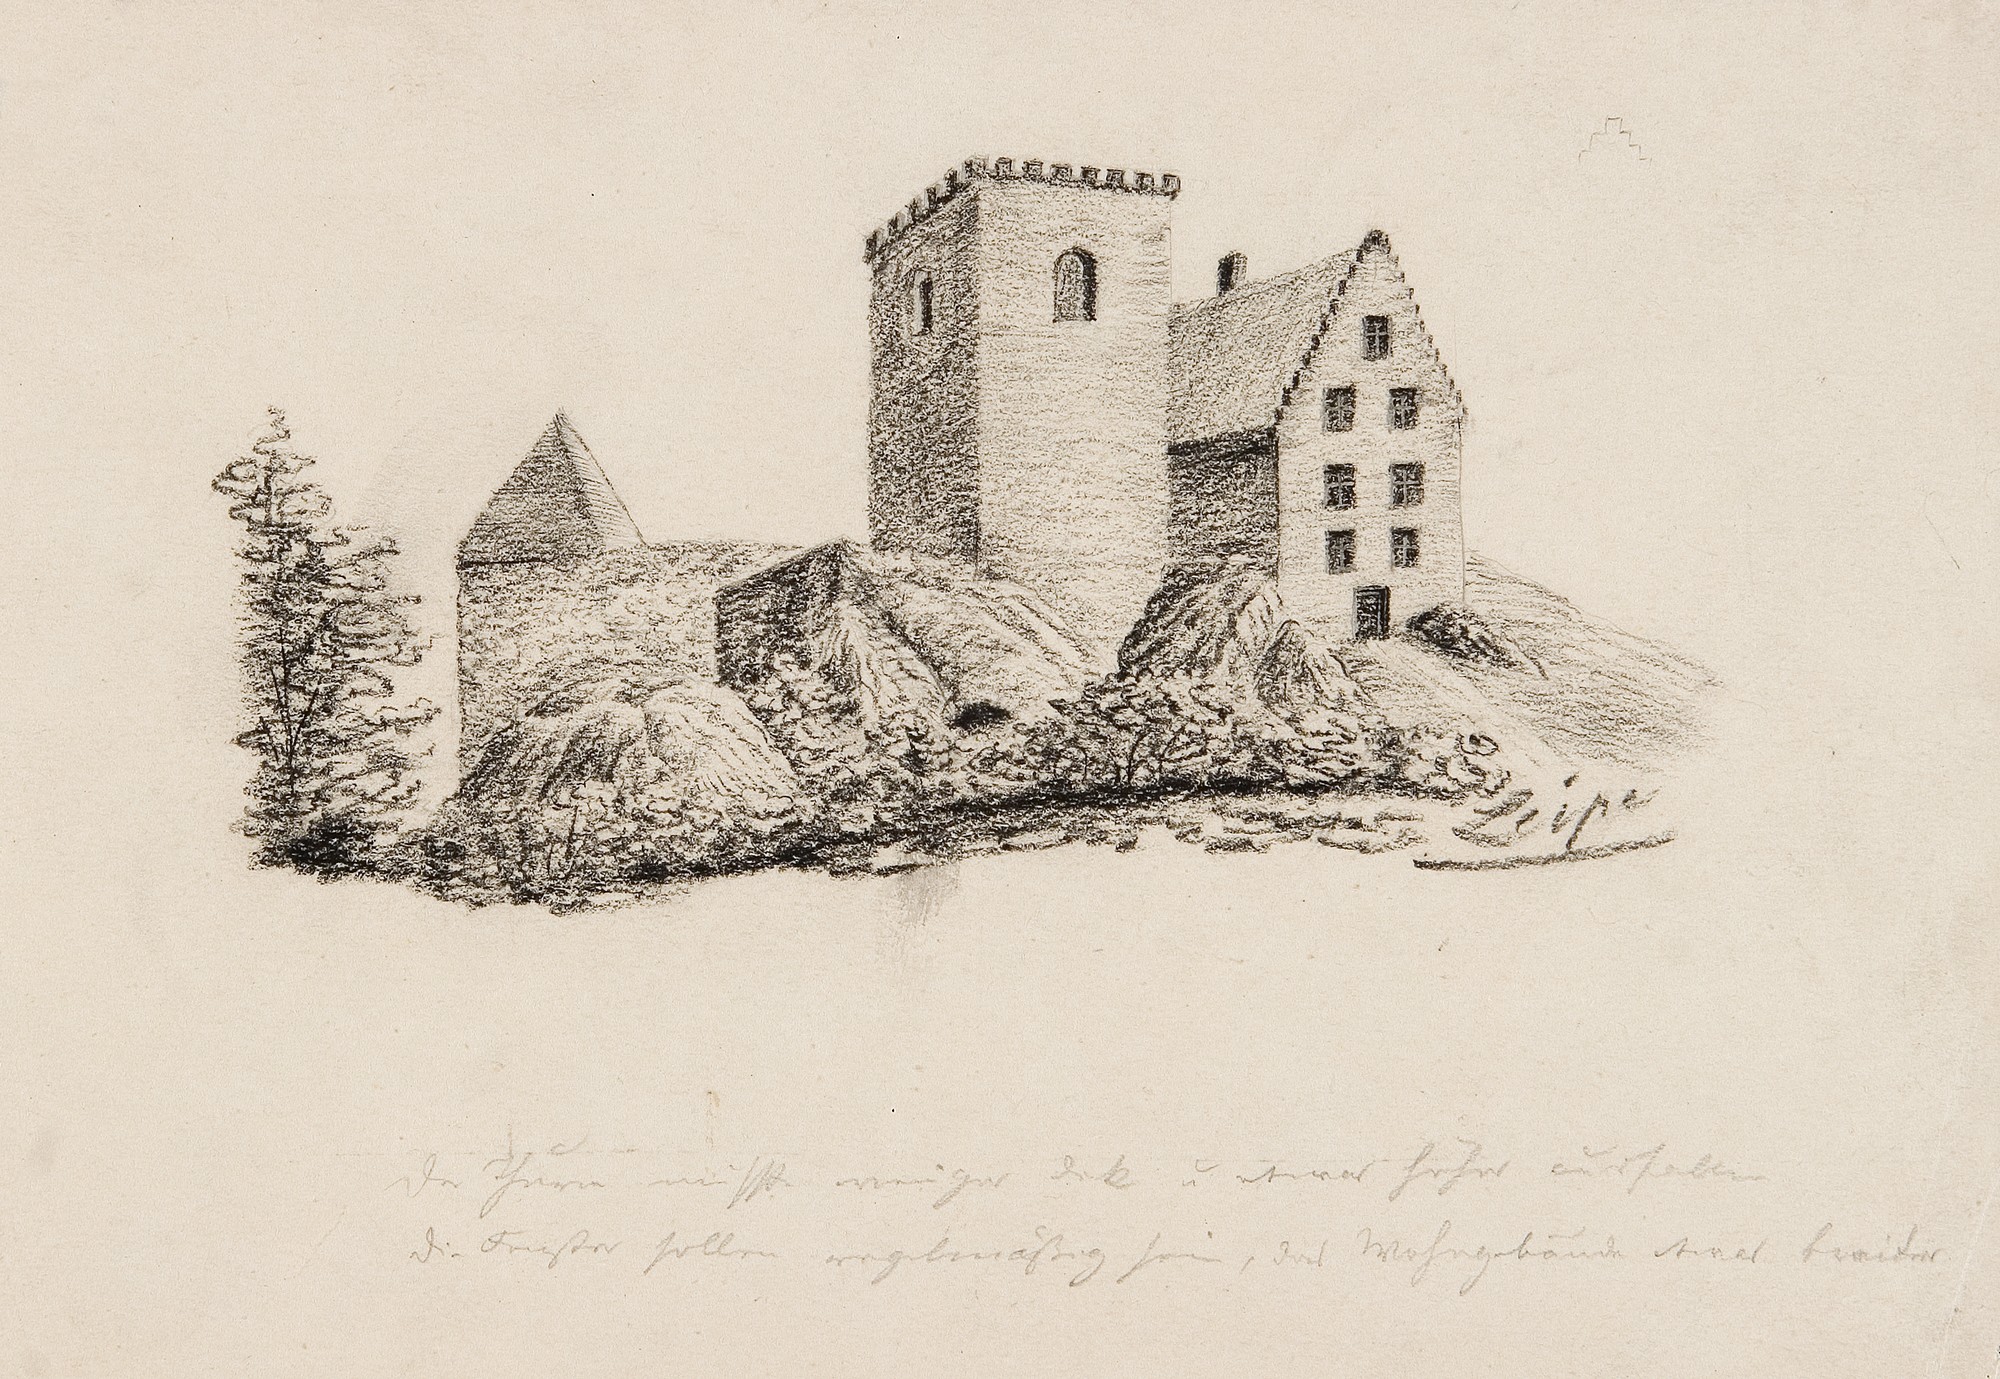 Leipe
Der Thurm müßte weniger dik u etwas höher ausfallen
die Fenster sollen regelmäßig sein, das Wohngebäude etwas breiter